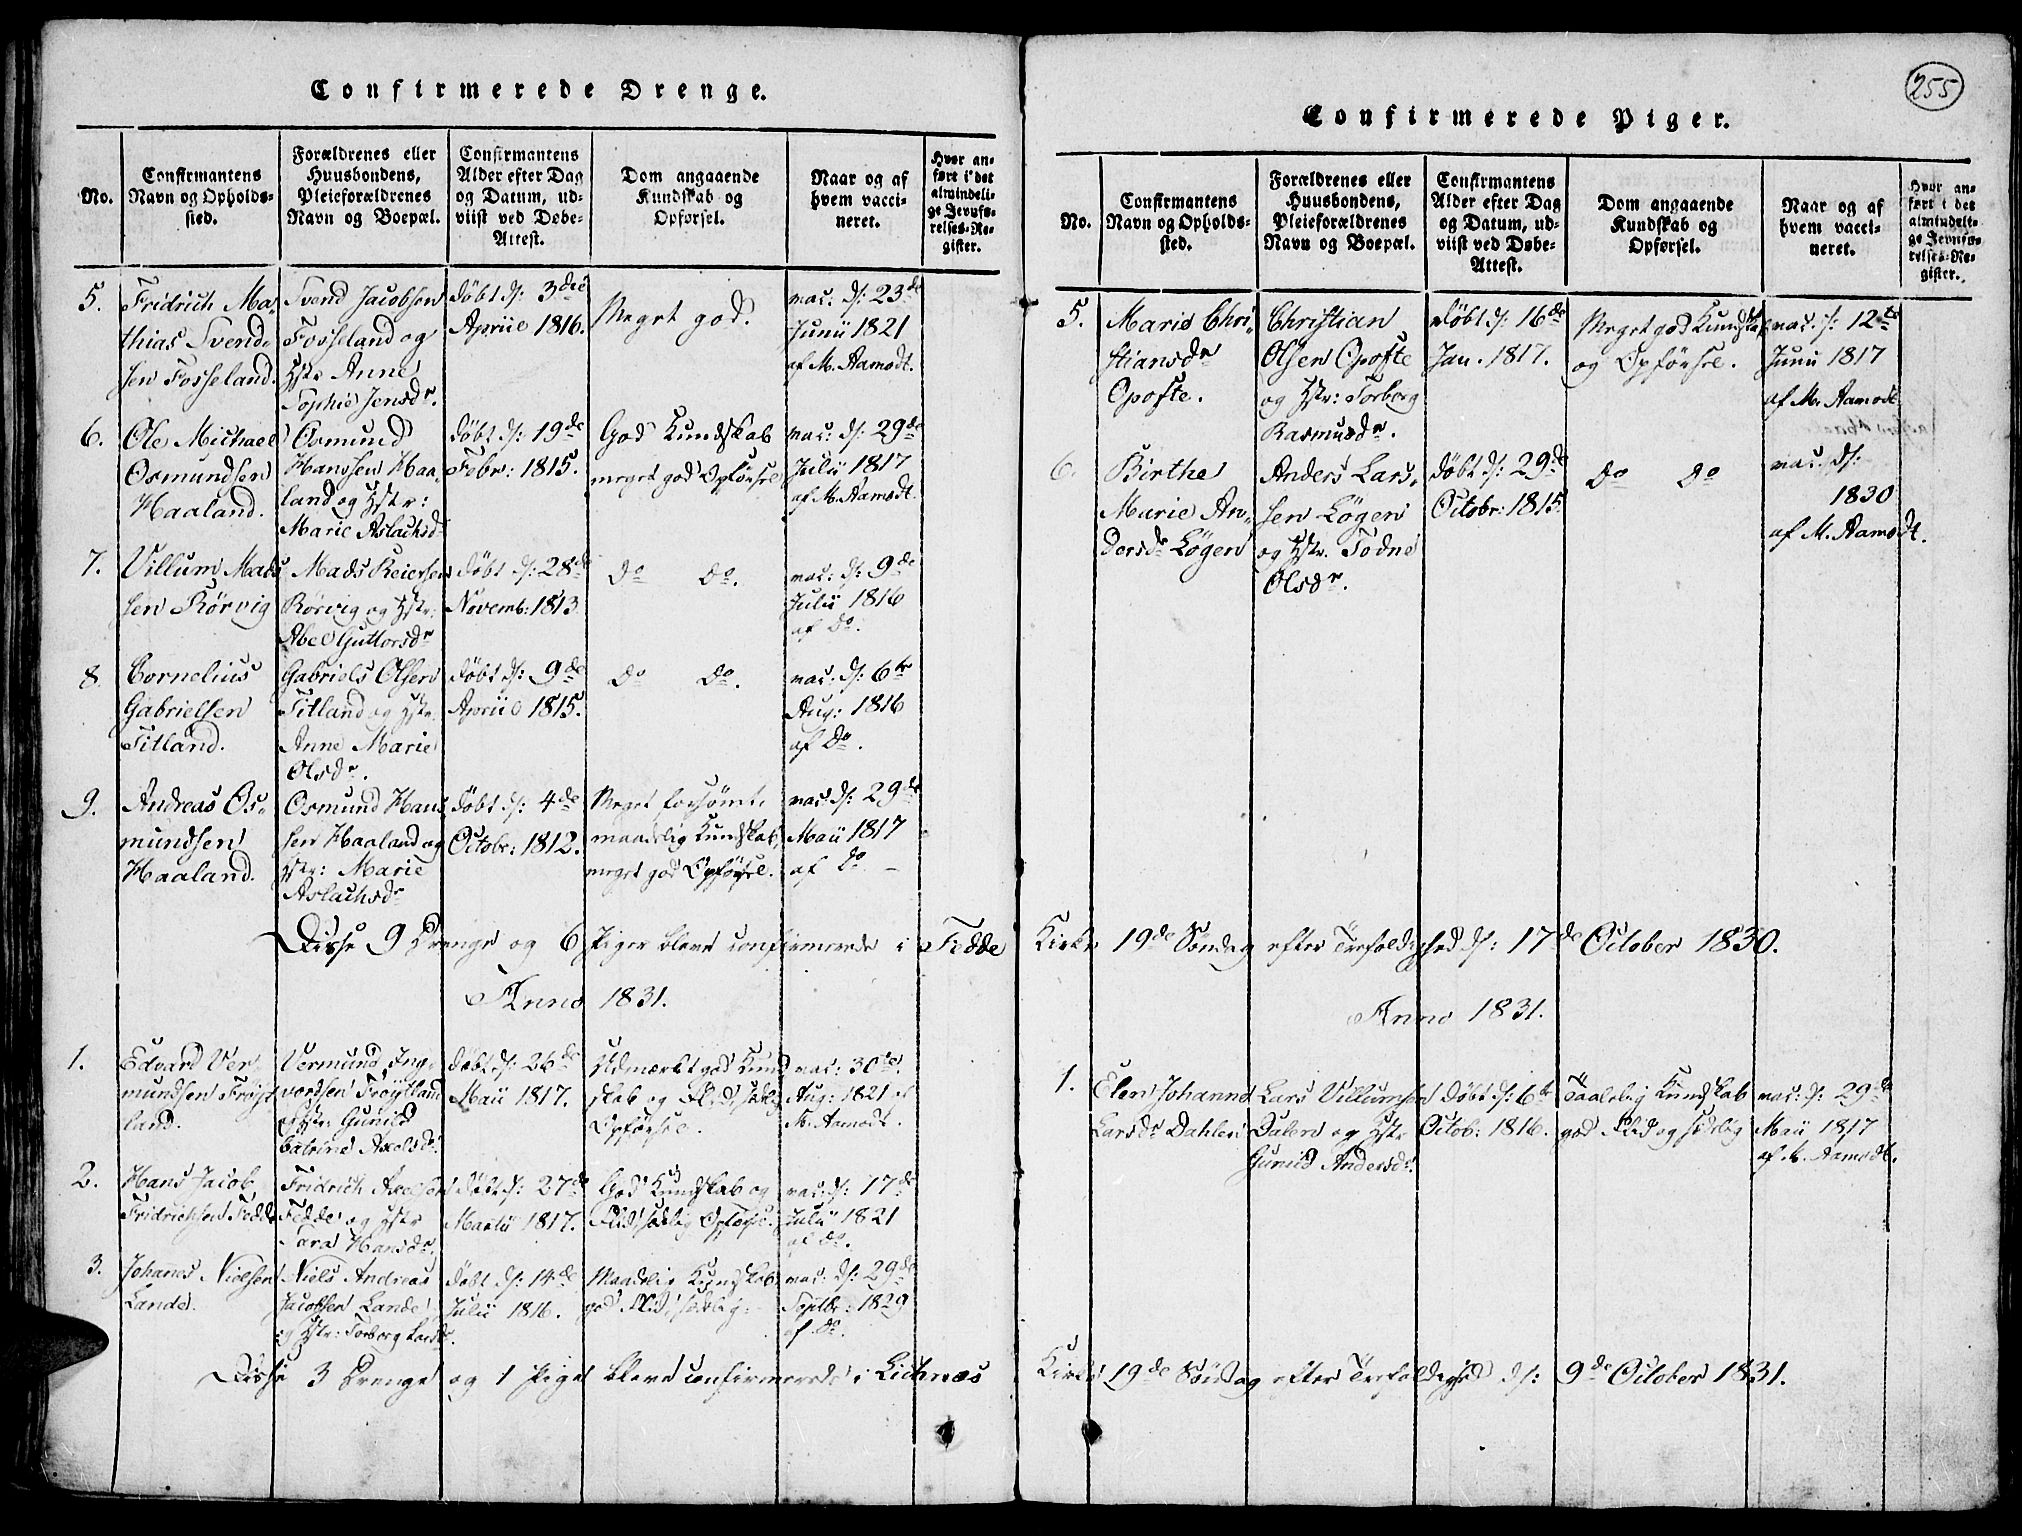 Confirmerede Drenge.
No.
Confirmantens
Navn og Opholds-
sted.
Forældrenes eller
Huusbondens,
Pleieforældrenes
Navn og Boepæl.
Confirmantens
Alder efter Dag
og Datum, ud-
viist ved Døbe-
Attest.
Dom angaaende
Kundskab og
Opførsel.
Naar og af
hvem vacci-
neret.
Hvor an-
ført i det
almindeli-
ge Jevnfø-
relses-Re-
gister.
5.
Fridrich Ma-
thias Svend-
sen Fosseland.
Svend Jacobsen
Fosseland og
Hstr Anne
Sophie Jensdr.
døbt d: 3die
April 1816.
Meget god.
vac: d: 23de
Junii 1821
af M. Aamodt.
6.
Ole Michael
Osmundsen
Haaland.
Osmund
Hanssen Haa-
land og Hstr:
Marie Aslachsd
døbt d: 19de
Febr: 1815.
God Kundskab
meget god Opførsel
vac: d: 29de
Julii 1817
af M. Aamodt.
7.
Villum Mads
sen Rørvig
Mads Reiersen
Rørvig og Hstr:
Abel Guttorsdr
døbt d: 28de
Novemb: 1813
Do Do.
vac: d: 9de
Julii 1816
af Do.
8.
Cornelius
Gabrielsen
Titland.
Gabriels Olsen
Titland og Hstr.
Anne Marie
Olsdr.
døbt d: 9de
April 1815.
Do Do.
vac: d: 6te
Aug: 1816
af Do.
9.
Andreas Os-
mundsen
Haaland.
Osmund Hans
sen Haaland og
Hstr: Marie
Aslachsdr
døbt d: 4de
Octobr: 1812.
Meget forsømt,
maadelig Kundskab,
meget god Opførsel.
vac: d: 29de
Maii 1817
af Do –
Disse 9 Drenge og 6 Piger bleve confirmerede i Fedde
Anno 1831.
1.
Edvard Ver-
mundsen Frøyt
land.
Vermund Ing-
vordsen Frøytland
og Hstr: Gunild
Catrine Axelsdr.
døbt d: 26de
Maii 1817.
Udmærket god Kund
skab og Flid sædelig
Opførsel.
vac: 30te
Aug: 1821 af
M. Aamodt.
2.
Hans Jacob
Fridrichsen Fedde
Fridrich Axelsen
Fedde og Hstr
Sara Hansdr.
døbt d: 27de
Martii 1817.
God Kundskab og
Flid sædelig Opførsel.
vac: d: 17de
Julii 1821
af Do.
3.
Johanes Nielsen
Lande.
Niels Andreas
Jacobsen Lande
og Hstr: Torborg Larsdr.
døbt d: 14de
Julii 1816.
Maadelig Kundskab,
god Flid, sædelig.
vac: d: 29de
Septbr: 1829
af Do.
Disse 3 Drenge og 1 Pige bleve confirmerede i Lichnæs
255
Confirmerede Piger.
No.
Confirmantens
Navn og Opholds-
sted.
Forældrenes eller
Huusbondens,
Pleieforældrenes
Navn og Boepæl.
Confirmantens
Alder efter Dag
og Datum, ud-
viist ved Døbe-
Attest.
Dom angaaende
Kundskab og
Opførsel.
Naar og af
hvem vacci-
neret.
Hvor an-
ført i det
almindeli-
ge Jevnfø-
relses-Re-
gister.
5.
Maria Chri-
stiansdr
Opofte.
Christian
Olsen Opofte
og Hstr: Torborg
Rasmusdr.
døbt d: 16de
Jan. 1817.
Meget god Kundskab
og Opførsel.
vac. d: 12te
Junii 1817
af M. Aamodt
6.
Birthe
Marie An-
dersdr Løgen
Anders Lars-
sen Løgen
og Hstr. Todne
Olsdr.
døbt d: 29de
Octobr: 1815.
Do Do
vac. d:
1830
af M. Aamodt.
Kirke 19de Søndag efter Trefoldighed d: 17de October 1830.
Anno 1831.
1.
Elen Johanne
Larsdr Dahlen
Lars Villumsen
Dalen og Hstr
Gunild Andersdr.
døbt d: 6te
Octob: 1816.
Taalelig Kundskab
god Flid og sædelig
vac: d: 29de
Maii 1817
af M. Aamodt.
Kirke 19de Søndag efter Trefoldighed d: 9de October 1831.